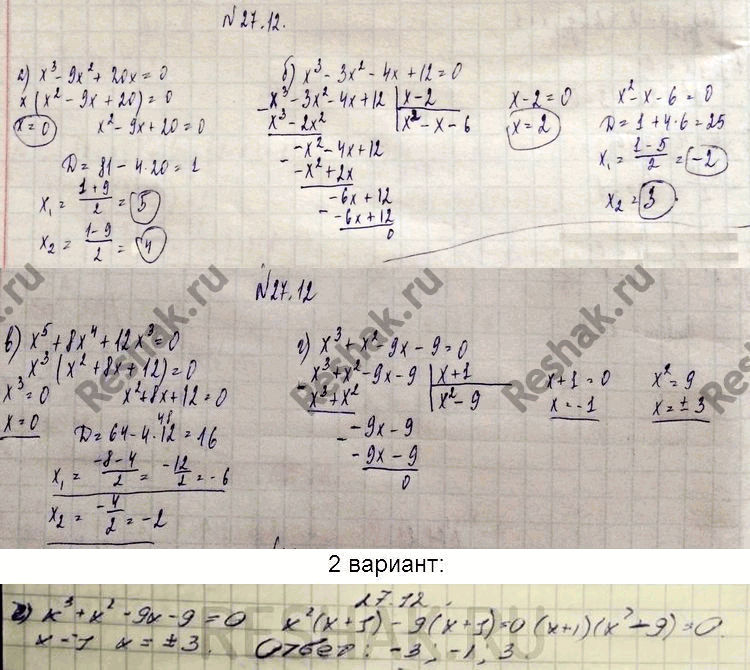 №27.12.
а) x³ - 9x² + 20x = 0
x (x² - 9x + 20) = 0
x = 0 x² - 9x + 20 = 0
D = 81 - 4·20 = 1
x₁ = (1+9)/2 = 5
x₂ = (1-9)/2 = 4
б) x³ - 3x² - 4x + 12 = 0
x³ - 3x² - 4x + 12 | x - 2
x³ - 2x² | x² - x - 6
-x² - 4x + 12
-x² + 2x
-6x + 12
-6x + 12
0
x - 2 = 0
x = 2
x² - x - 6 = 0
D = 1 + 4·6 = 25
x₁ = (1-5)/2 = -2
x₂ = 3
№27.12
в) x⁵ + 8x⁴ + 12x³ = 0
x³ (x² + 8x + 12) = 0
x³ = 0 x² + 8x + 12 = 0
x = 0
48
D = 64 - 4·12 = 16
x₁ = (-8-4)/2 = -12/2 = -6
x₂ = -4/2 = -2
г) x³ + x² - 9x - 9 = 0
x³ + x² - 9x - 9 | x + 1
x³ + x² | x² - 9
-9x - 9
-9x - 9
0
x + 1 = 0
x = -1
x² = 9
x = ± 3
Reshak.ru
Reshak.ru
Reshak.ru
Reshak.ru
2 вариант:
27.12.
г) x³ + x² - 9x - 9 = 0 x² (x+1) - 9 (x+1) = 0 (x+1) (x² - 9) = 0.
x = -1 x = ± 3. Ответ: -3, -1, 3
RESHAK.RU